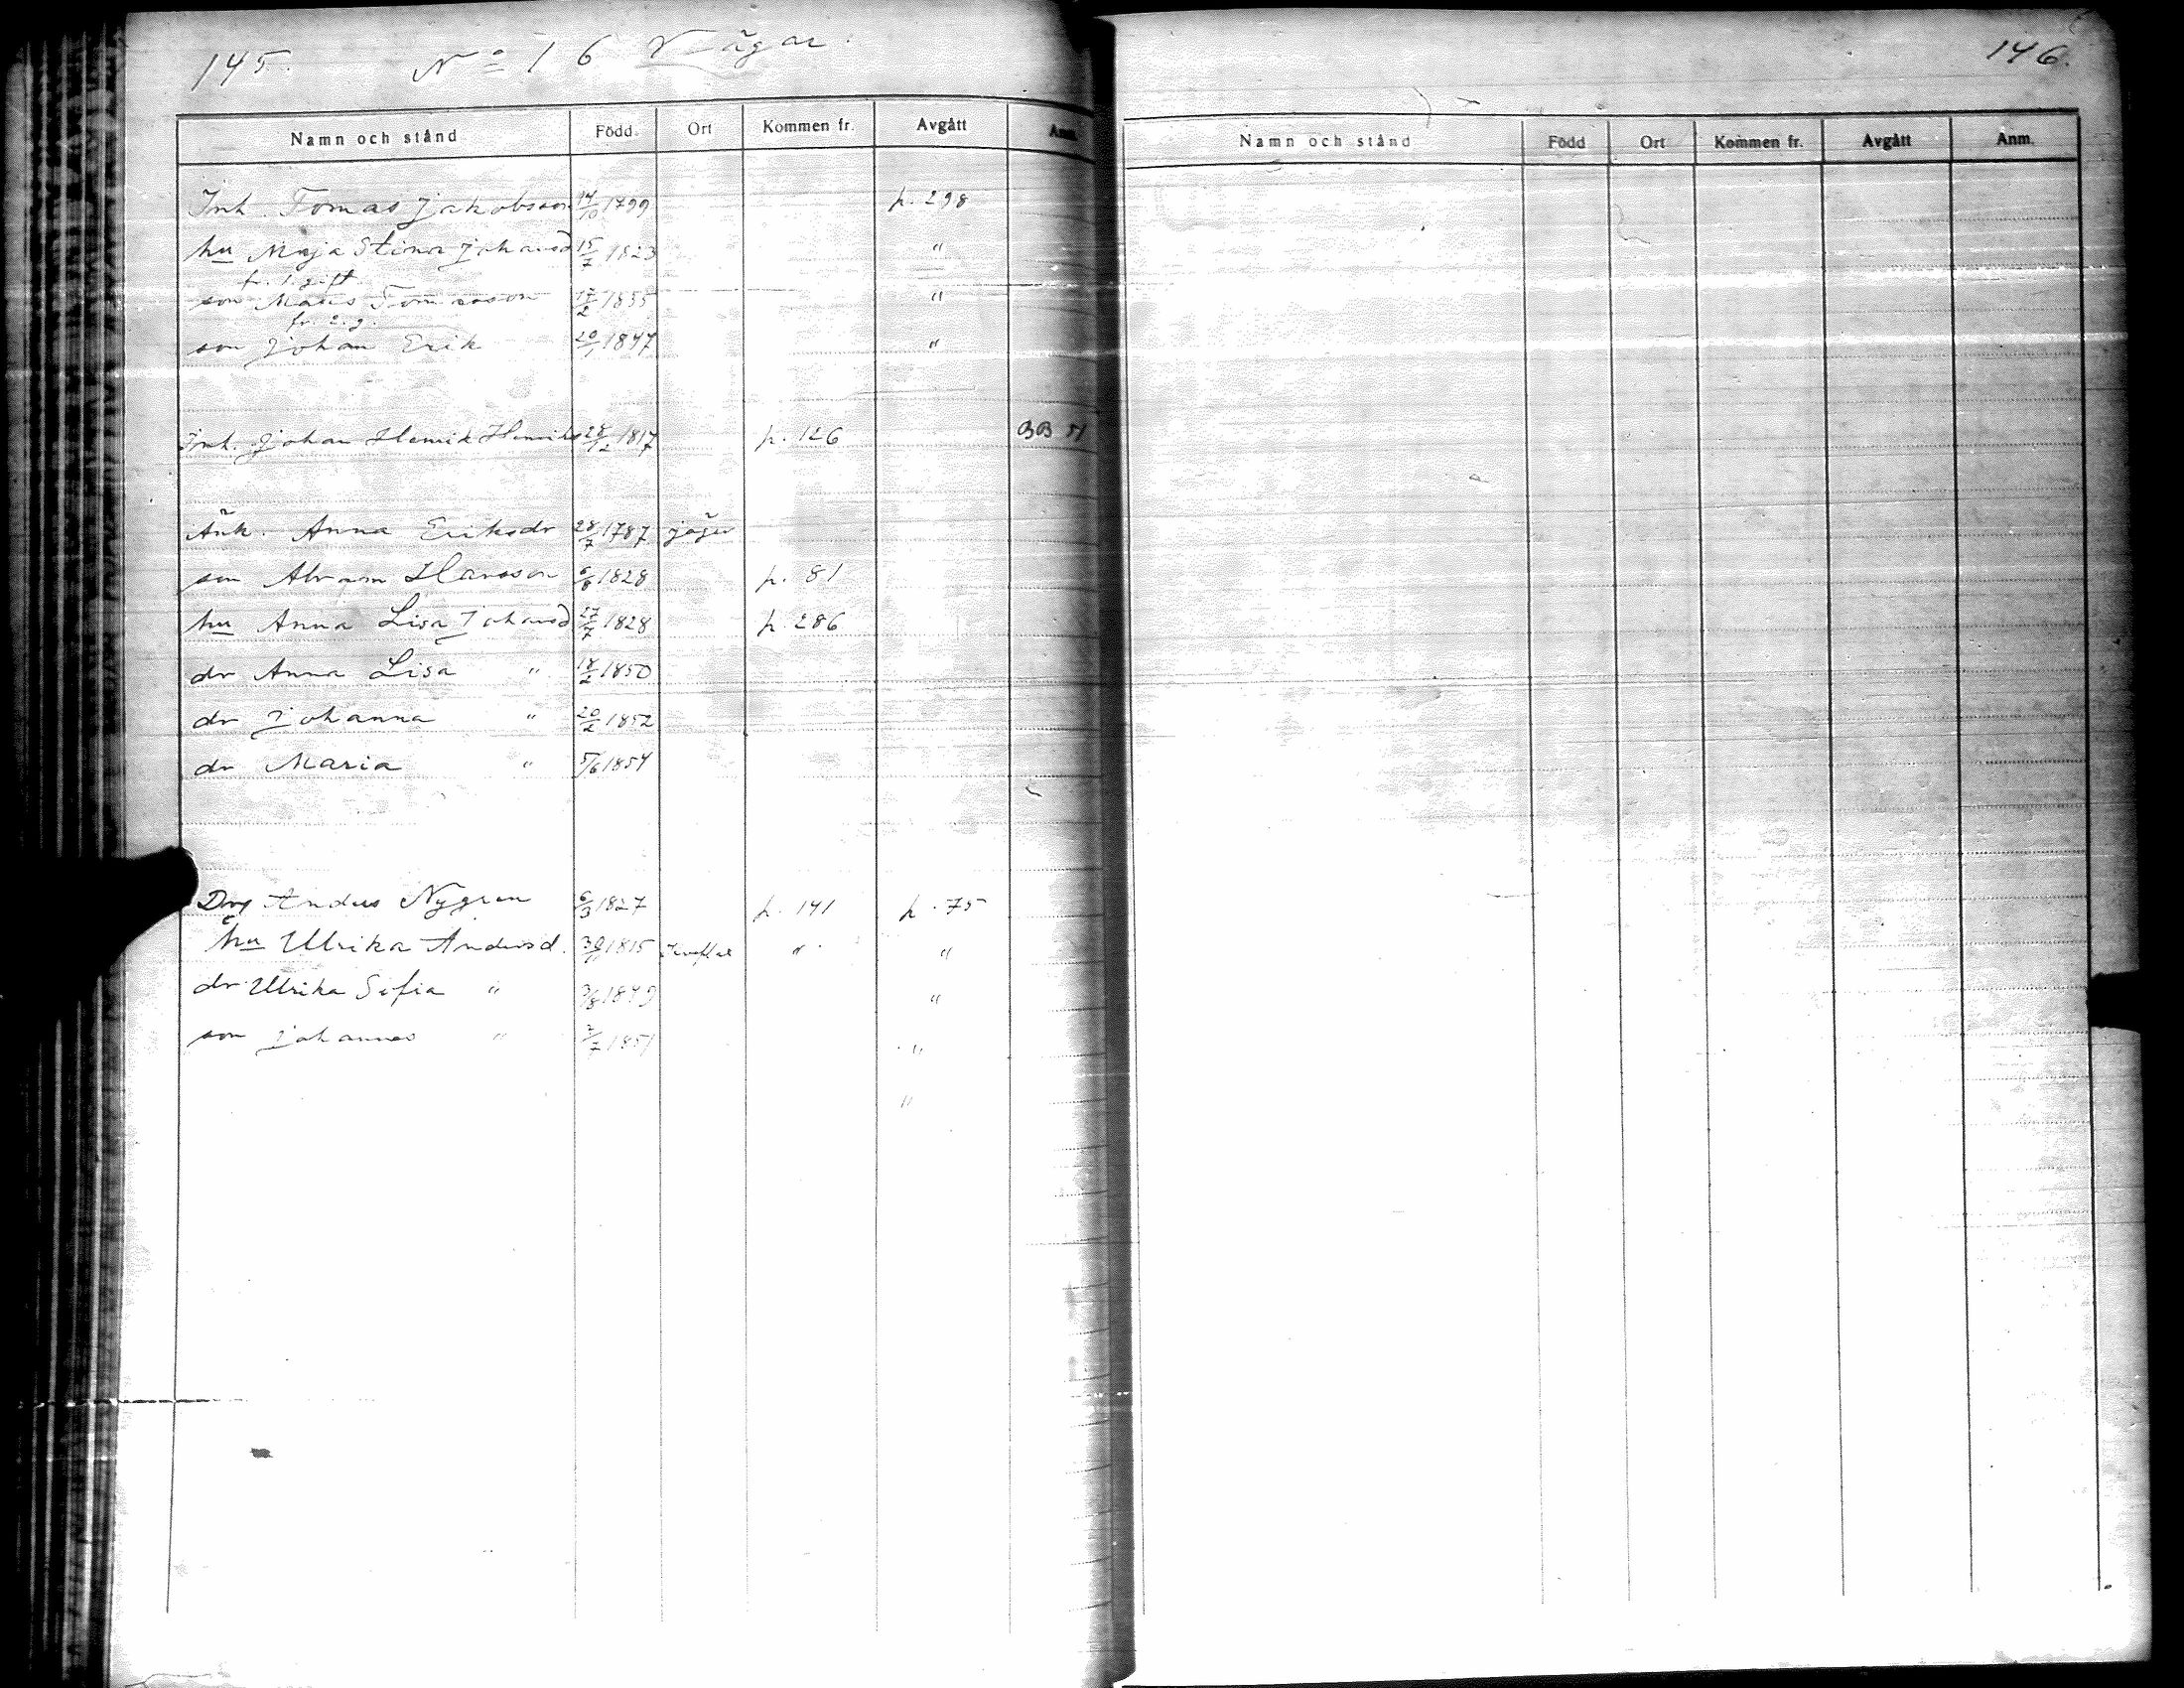 145. No 16 Vägar.
Namn och stånd Född Ort Kommen fr. Avgått Anm.
Inh. Tomas Jakobsson 14/10 1799 p. 298
hu Maja Stina Johansd 15/7 1823 "
fr. 1. gift.
son Mats Tomasson 17/2 1835 "
fr. 2. g.
son Johan Erik 20/1 1847 "
Inh. Johan Henrik Henriks 28/12 1817 p. 126 BB 51
Änk. Anna Eriksdr 28/7 1787
son Abram Hansson 6/8 1828 p. 81
hu Anna Lisa Johansd 27/7 1828 p. 286
dr Anna Lisa " 18/2 1850
dr Johanna " 20/2 1852
dr Maria " 5/6 1854
Drg Anders Nygren 6/3 1827 p. 141 p. 75
hu Ulrika Andersd. 30/11 1815 " "
dr Ulrika Sofia " 3/8 1849 "
son Johannes " 2/7 1851 "
"
146.
Namn och stånd Född Ort Kommen fr. Avgått Anm.